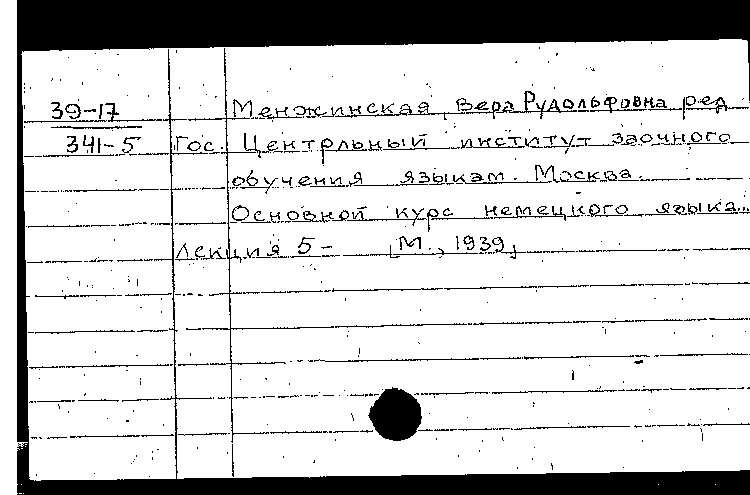 39-17 Менжинская, Вера Рудольфовна ред
341-5 Гос. Центрльный институт заочного
обучения языкам. Москва.
Основной курс немецкого языка...
Лекция 5- [М., 1939]